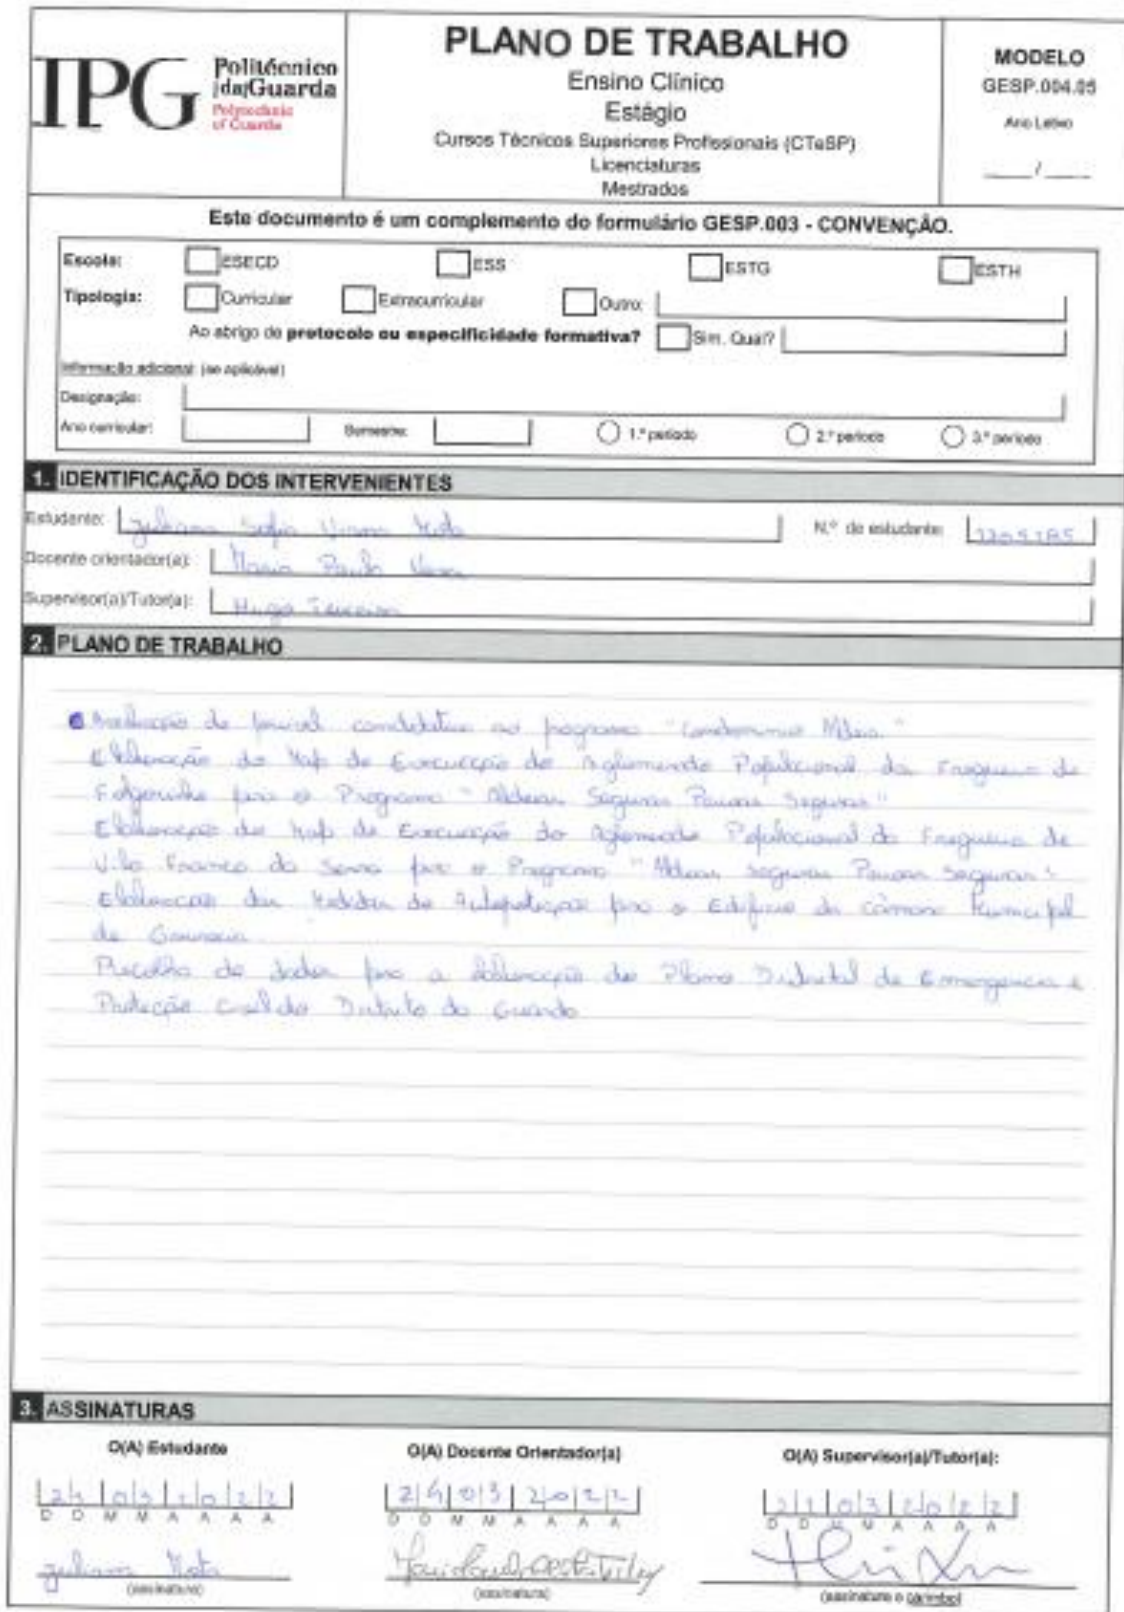 IPG Politécnico da Guarda
Polytechnic of Guarda
PLANO DE TRABALHO
Ensino Clínico
Estágio
Cursos Técnicos Superiores Profissionais (CTeSP)
Licenciaturas
Mestrados
MODELO
GESP.004.05
Ano Letivo
____/____
Este documento é um complemento do formulário GESP.003 - CONVENÇÃO.
Escola: ESECD ESS ESTG ESTH
Tipologia: Curricular Extracurricular Outro:
Ao abrigo de protocolo ou especificidade formativa? Sim. Qual?
Informação adicional: (se aplicável)
Designação:
Ano curricular: Semestre: 1.º período 2.º período 3.º período
1. IDENTIFICAÇÃO DOS INTERVENIENTES
Estudante: Juliana Sofia Mota N.º de estudante:
Docente orientador(a): Maria Paula
Supervisor(a)/Tutor(a): Hugo Teixeira
2. PLANO DE TRABALHO
de possível candidatura ao programa "Condomínio Aldeia."
Elaboração do Mapa de Evacuação do Aglomerado Populacional da Freguesia de
Folgosinho para o Programa "Aldeias Seguras Pessoas Seguras"
Elaboração do Mapa de Evacuação do Aglomerado Populacional da Freguesia de
Vila Franca da Serra para o Programa "Aldeias Seguras Pessoas Seguras"
Elaboração das Medidas de Autoproteção para o Edifício da Câmara Municipal
de Gouveia
Recolha de dados para a elaboração do Plano Distrital de Emergência e
Proteção Civil do Distrito da Guarda
3. ASSINATURAS
O(A) Estudante O(A) Docente Orientador(a) O(A) Supervisor(a)/Tutor(a):
24 03 2022 21 03 2022
D D M M A A A A D D M M A A A A D D M M A A A A
Juliana Mota
(assinatura) (assinatura) (assinatura e carimbo)